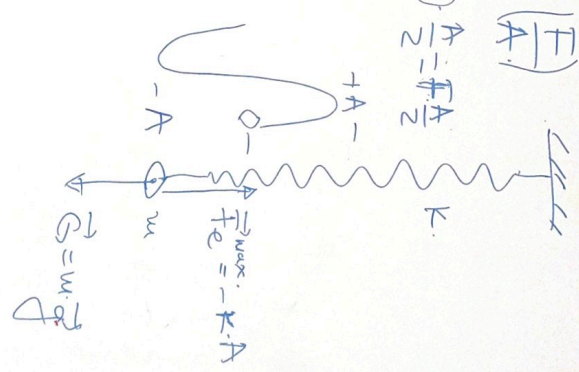 F
A
+A
O
-A
K
m
F⃗e max. = -K·A⃗
G⃗ = m·g⃗